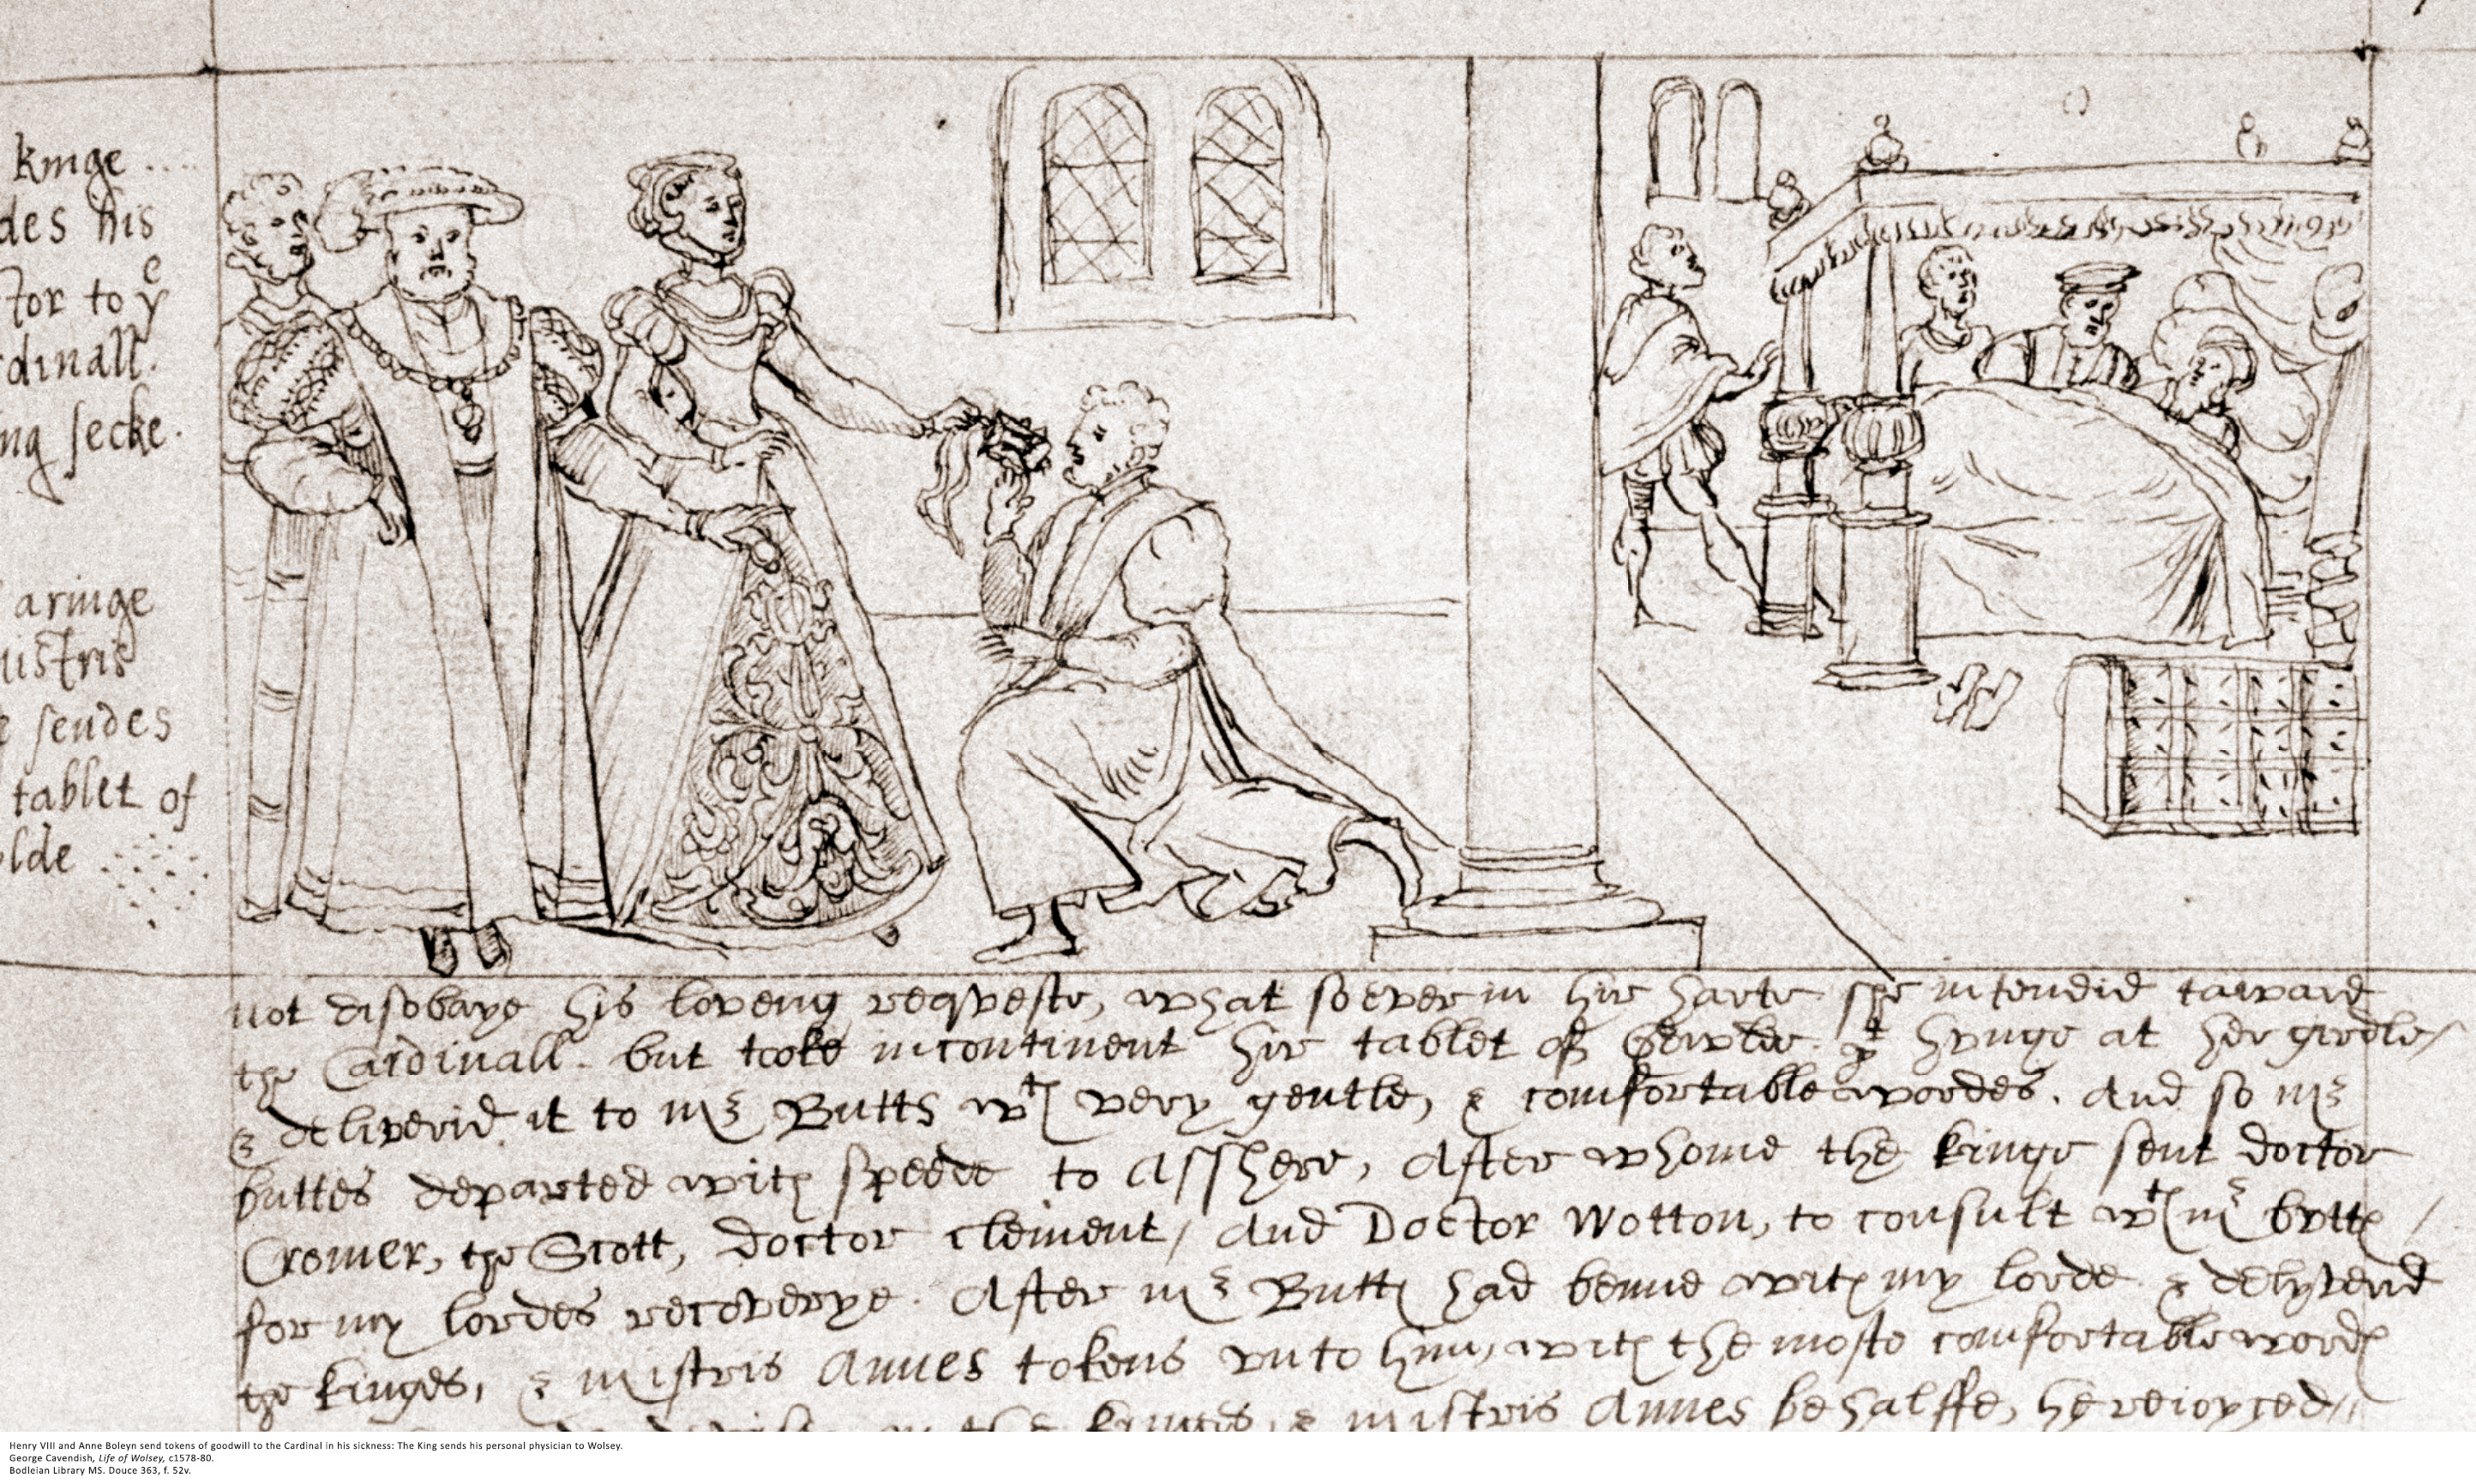 kinge
des his
tor to yᵉ
dinall.
ng secke.
a ringe
mistris
e sendes
tablet of
lde
not disobaye his loveng requeste, what soever in hir harte she intendid taward
the Cardinall. but tooke incontinent hir tablet of yᵗ hynge at her girdle/
& deliverid it to mʳ Butts wᵗʰ very gentle, & comfortable wordes. And so mʳ
buttes departed with speede to Asshere, After whome the kinge sent doctor
Cromer, the Scott, doctor clement, And Doctor Wotton, to consult wᵗʰ mʳ butts /
for my lordes recoverye. After mʳ Butts had benne with my lorde & delyverid
the kinges, & mistris Annes tokens unto him, with the moste comfortable words
the kinges, & mistris Annes behalffe, he reioyced//
Henry VIII and Anne Boleyn send tokens of goodwill to the Cardinal in his sickness: The King sends his personal physician to Wolsey.
George Cavendish, Life of Wolsey, c1578-80.
Bodleian Library MS. Douce 363, f. 52v.